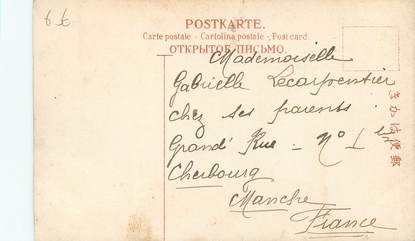 POSTKARTE.
Carte postale - Cartolina postale - Post card
ОТКРЫТОЕ ПИСЬМО.
Mademoiselle
Gabrielle Lecarpentier
chez ses parents
Grand' Rue - N° 1
Cherbourg
Manche
France
きかは便郵